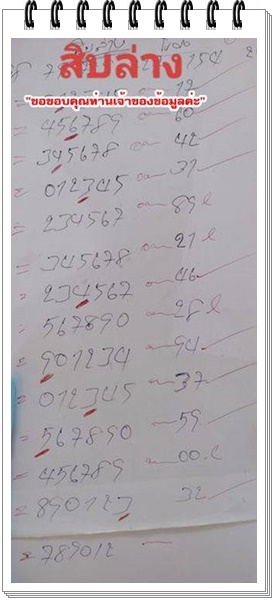 สิบล่าง
"ขอขอบคุณท่านเจ้าของข้อมูลค่ะ"
= 456789 60
= 345678 42
= 012345 31
= 234567 89
= 345678 21
= 234567 46
= 567890 28
= 901234 94
= 012345 37
= 567890 59
= 456789 00
= 890123 32
= 789012